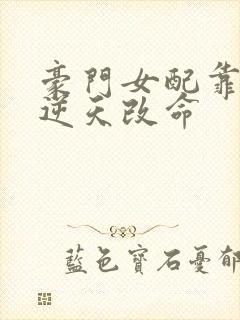 豪門女配靠
逆天改命
藍色寶石憂郁